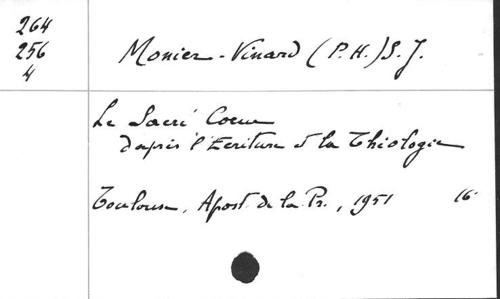 264
256
4
Monier-Vinard (P.H.) S.J.
Le Sacré Coeur
d'après l'Ecriture et la Théologie
Toulouse, Apost. de la Pr., 1951 16°